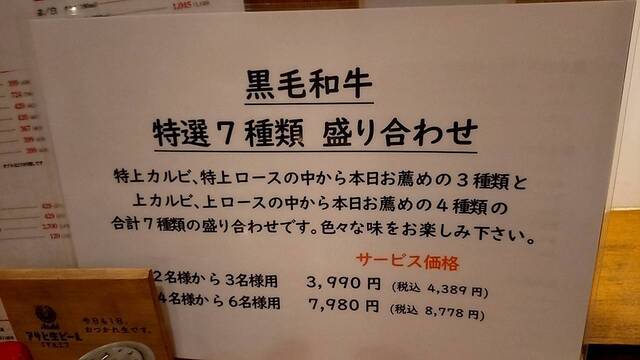 黒毛和牛
特選7種類 盛り合わせ
特上カルビ、特上ロースの中から本日お薦めの3種類と
上カルビ、上ロースの中から本日お薦めの4種類の
合計7種類の盛り合わせです。色々な味をお楽しみ下さい。
サービス価格
2名様から3名様用 3,990円 (税込 4,389円)
4名様から6名様用 7,980円 (税込 8,778円)
今日も1日、
おつかれ生です。
Asahi
アサヒ生ビール
1,045